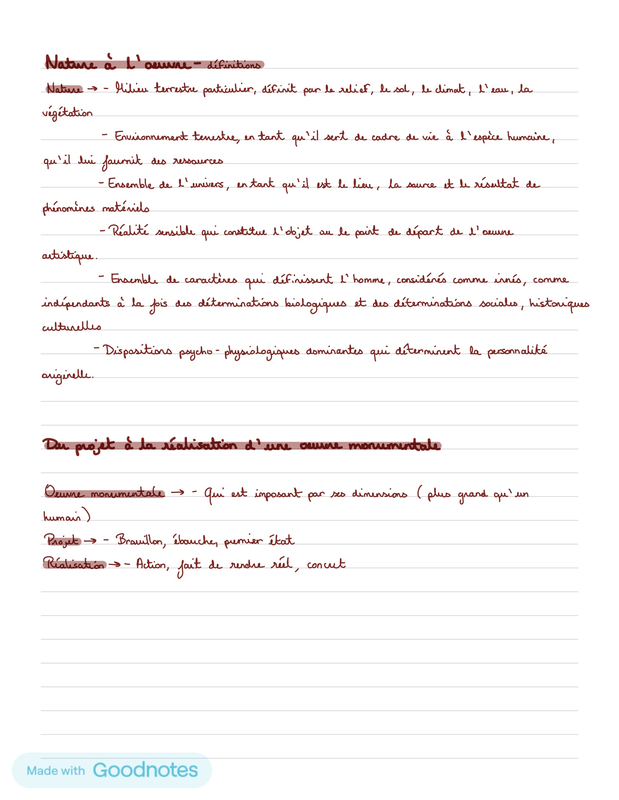 Nature à l'oeuvre - définitions
Nature → - Milieu terrestre particulier, définit par le relief, le sol, le climat, l'eau, la
végétation
- Environnement terrestre, en tant qu'il sert de cadre de vie à l'espèce humaine,
qu'il lui fournit des ressources
- Ensemble de l'univers, en tant qu'il est le lieu, la source et le résultat de
phénomènes matériels
- Réalité sensible qui constitue l'objet ou le point de départ de l'oeuvre
artistique.
- Ensemble de caractères qui définissent l'homme, considérés comme innés, comme
indépendants à la fois des déterminations biologiques et des déterminations sociales, historiques
culturelles
- Dispositions psycho-physiologiques dominantes qui déterminent la personnalité
originelle.
Du projet à la réalisation d'une oeuvre monumentale
Oeuvre monumentale → - Qui est imposant par ses dimensions (plus grand qu'un
humain)
Projet → - Brouillon, ébauche, premier état
Réalisation → - Action, fait de rendre réel, concret
Made with Goodnotes